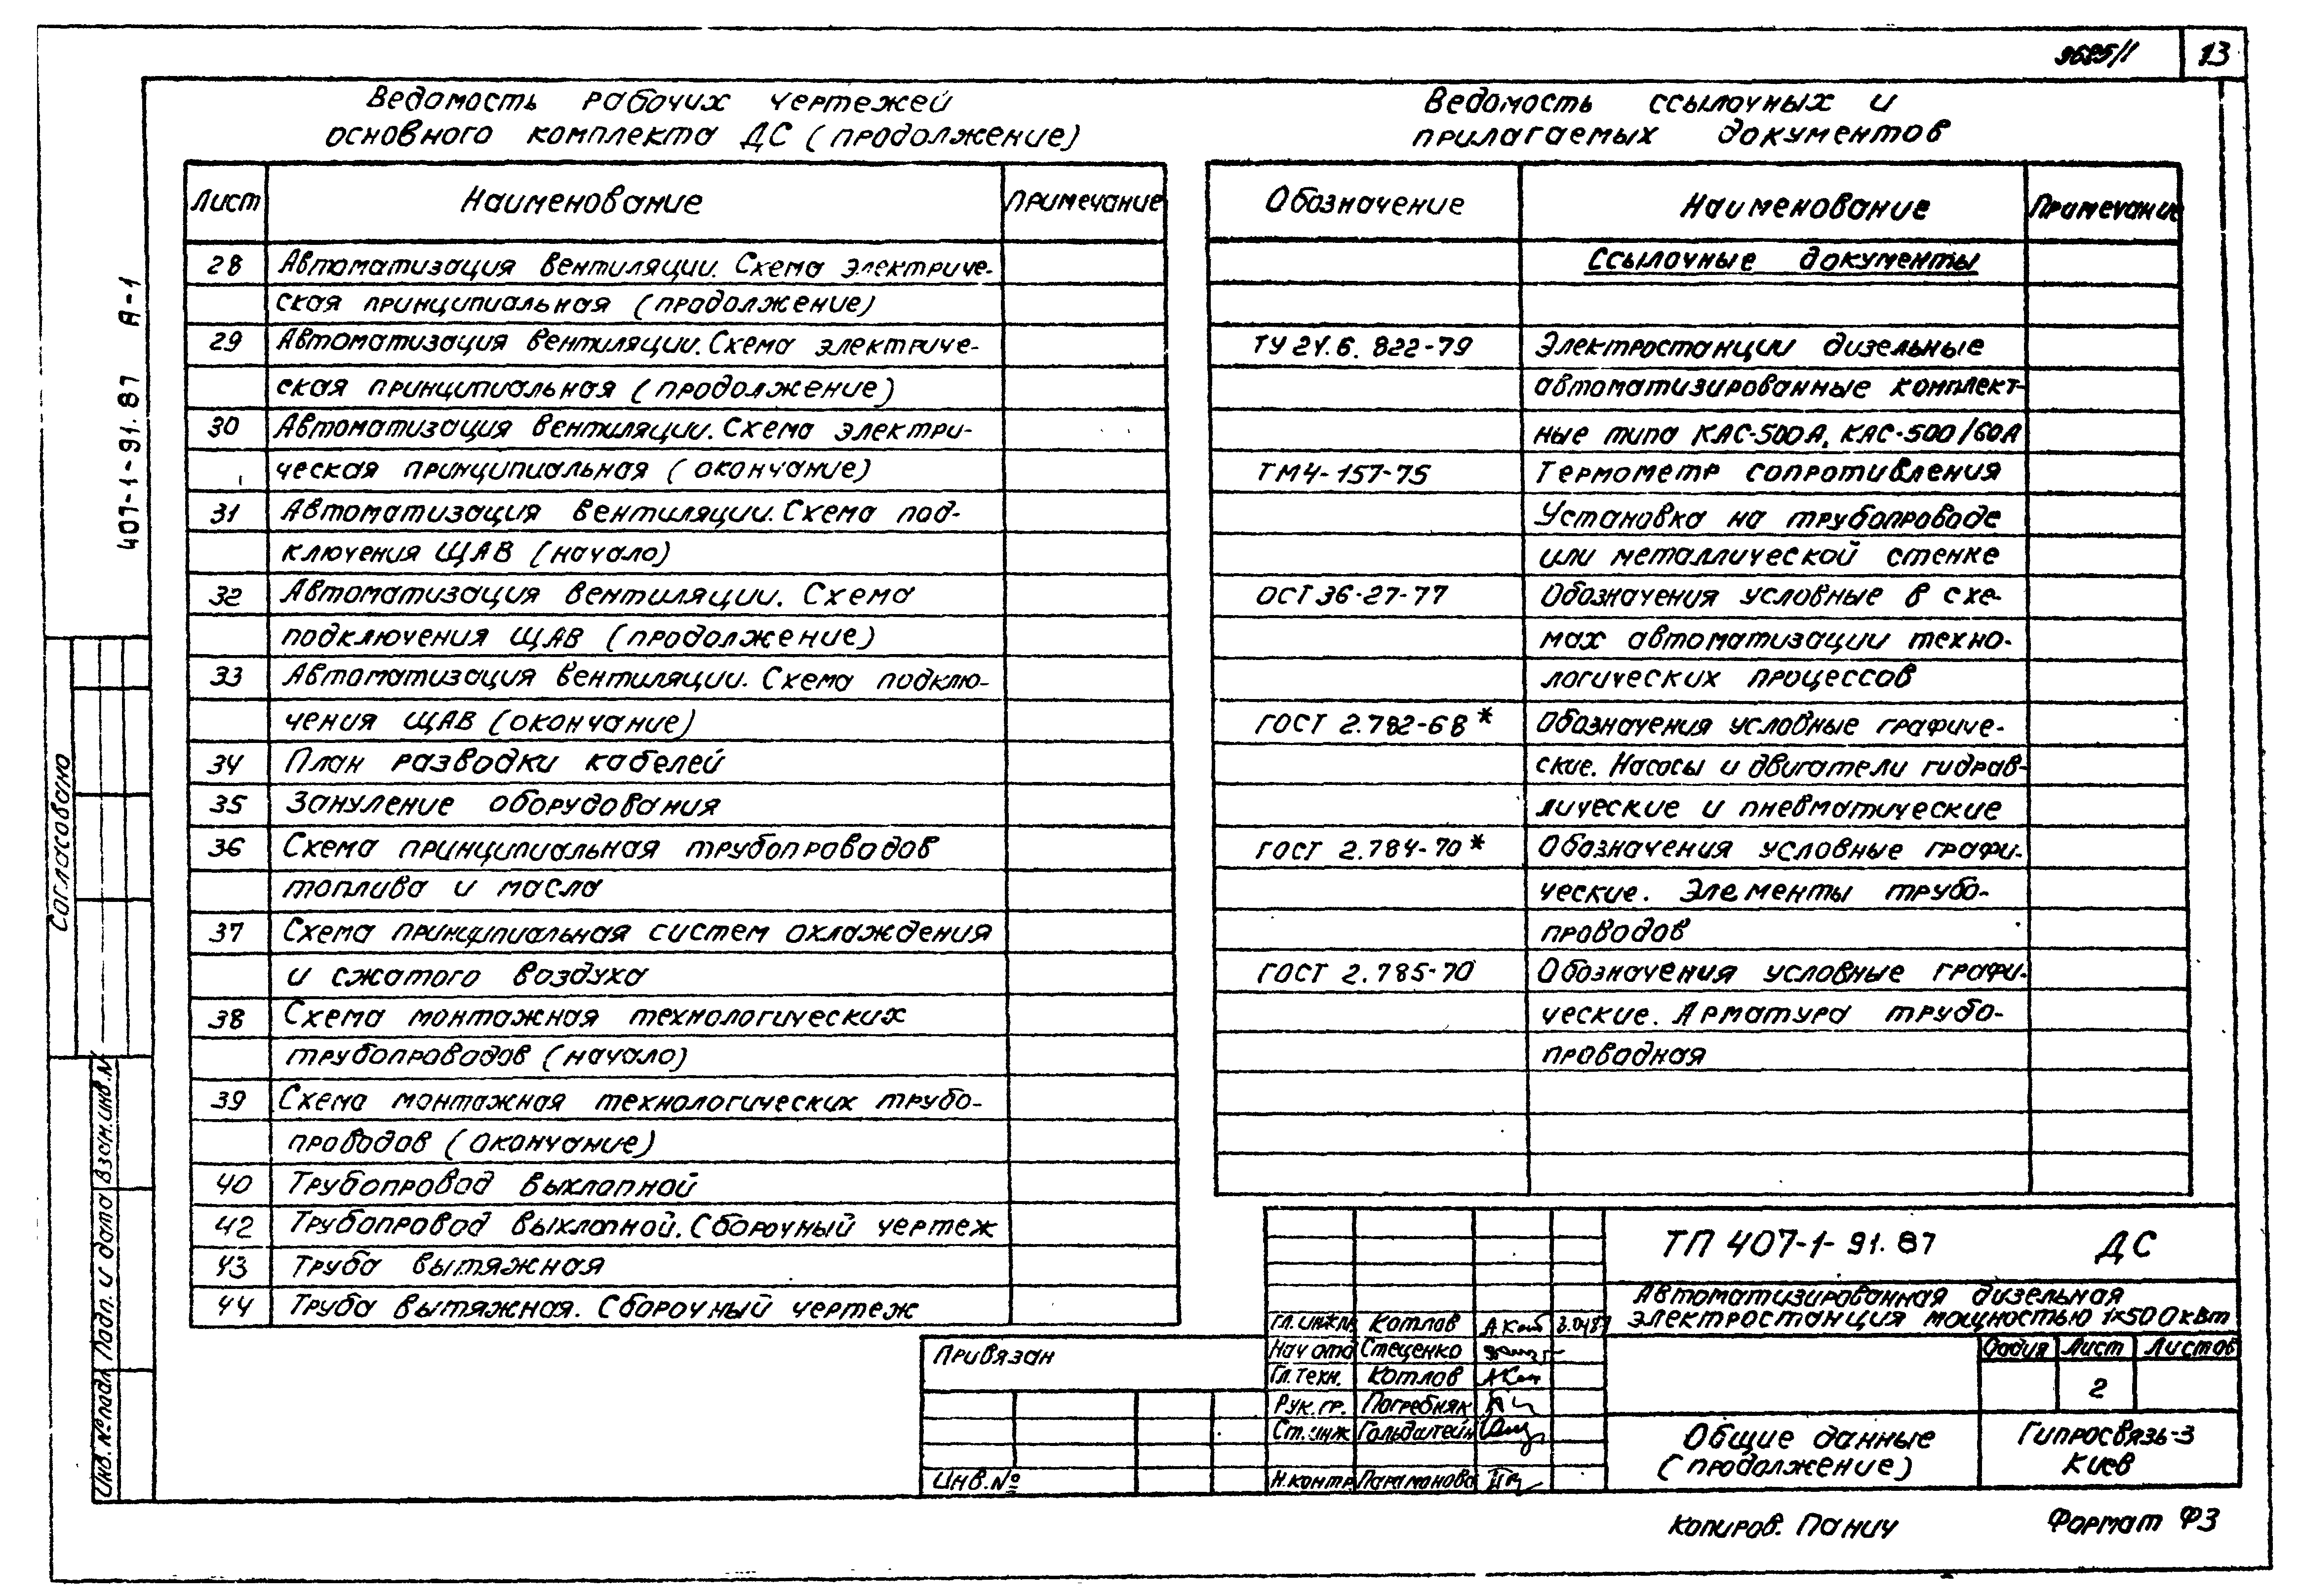 9685/1 13
Ведомость рабочих чертежей
основного комплекта ДС (продолжение)
Лист Наименование Примечание
28 Автоматизация вентиляции. Схема электриче-
ская принципиальная (продолжение)
29 Автоматизация вентиляции. Схема электриче-
ская принципиальная (продолжение)
30 Автоматизация вентиляции. Схема электри-
ческая принципиальная (окончание)
31 Автоматизация вентиляции. Схема под-
ключения ЩАВ (начало)
32 Автоматизация вентиляции. Схема
подключения ЩАВ (продолжение)
33 Автоматизация вентиляции. Схема подклю-
чения ЩАВ (окончание)
34 План разводки кабелей
35 Зануление оборудования
36 Схема принципиальная трубопроводов
топлива и масла
37 Схема принципиальная систем охлаждения
и сжатого воздуха
38 Схема монтажная технологических
трубопроводов (начало)
39 Схема монтажная технологических трубо-
проводов (окончание)
40 Трубопровод выхлопной
42 Трубопровод выхлопной. Сборочный чертеж
43 Труба вытяжная
44 Труба вытяжная. Сборочный чертеж
Ведомость ссылочных и
прилагаемых документов
Обозначение Наименование Примечание
Ссылочные документы
ТУ 24.6. 822-79 Электростанции дизельные
автоматизированные комплект-
ные типа КАС-500А, КАС-500/60А
ТМ4-157-75 Термометр сопротивления
Установка на трубопроводе
или металлической стенке
ОСТ 36-27-77 Обозначения условные в схе-
мах автоматизации техно-
логических процессов
ГОСТ 2.782-68* Обозначения условные графиче-
ские. Насосы и двигатели гидрав-
лические и пневматические
ГОСТ 2.784-70* Обозначения условные графи-
ческие. Элементы трубо-
проводов
ГОСТ 2.785-70 Обозначения условные графи-
ческие. Арматура трубо-
проводная
407-1-91.87 А-1
Согласовано
Инв. № подл. Подп. и дата Взам. инв. №
Привязан
Инв. №
Гл. инж. пр. Котлов
Нач отд Стеценко
Гл. техн. Котлов
Рук. гр. Погребняк
Ст. инж Гольдштейн
Н. контр Парамонова
ТП 407-1-91.87 ДС
Автоматизированная дизельная
электростанция мощностью 1х500кВт
Стадия Лист Листов
2
Общие данные
(продолжение)
Гипросвязь-3
Киев
Копиров. Панич Формат Ф3